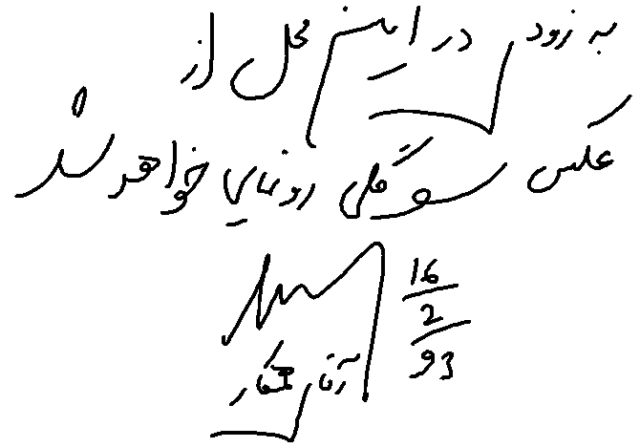 به زودی در این محل از
عکس سوگلی رونمایی خواهد شد
16
2
93
آقای